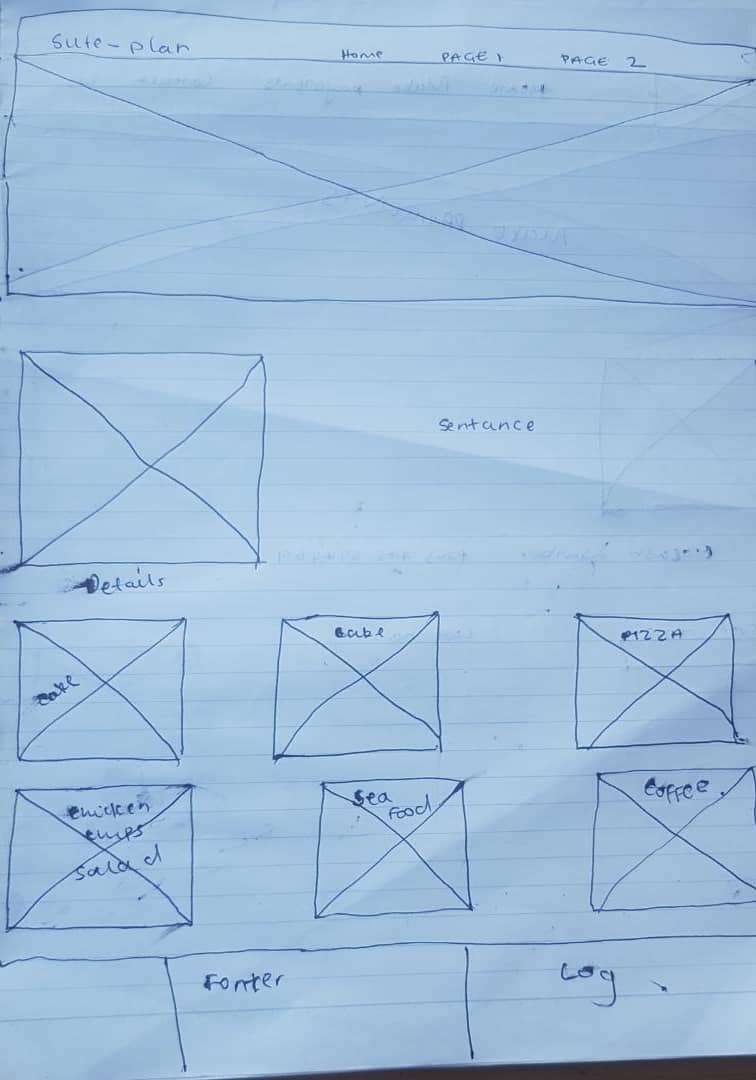 Sute-plan Home PAGE 1 PAGE 2
Sentance
Details
cake
cake
PIZZA
chicken
chips
salad
Sea
Food
Coffee
Footer
Log